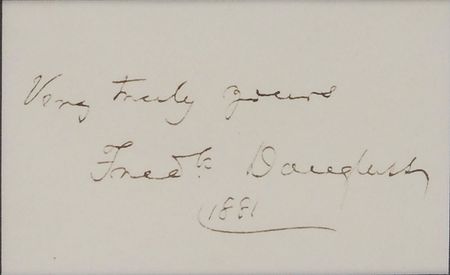 Very truly yours
Fredk Douglass
1881